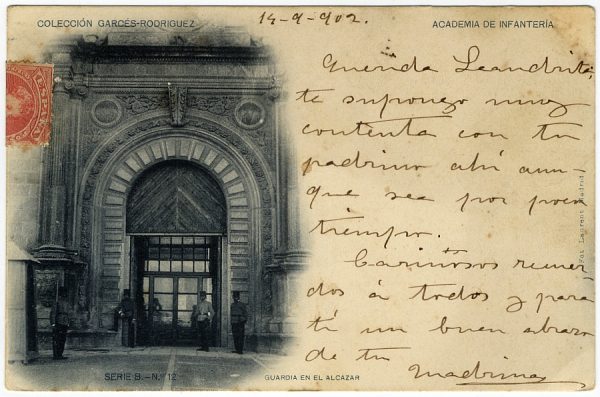 COLECCIÓN GARCÉS-RODRIGUEZ
14-9-902.
ACADEMIA DE INFANTERÍA
ESPAÑA
Querida Leandrita,
te supongo muy
contenta con tu
padrino ahí aun-
que sea por poco
tiempo.
Cariñosos recuer
dos á todos y para
tí un buen abrazo
de tu Madrina
Fot. Laurent Madrid
SERIE B.-N.º 12
GUARDIA EN EL ALCAZAR